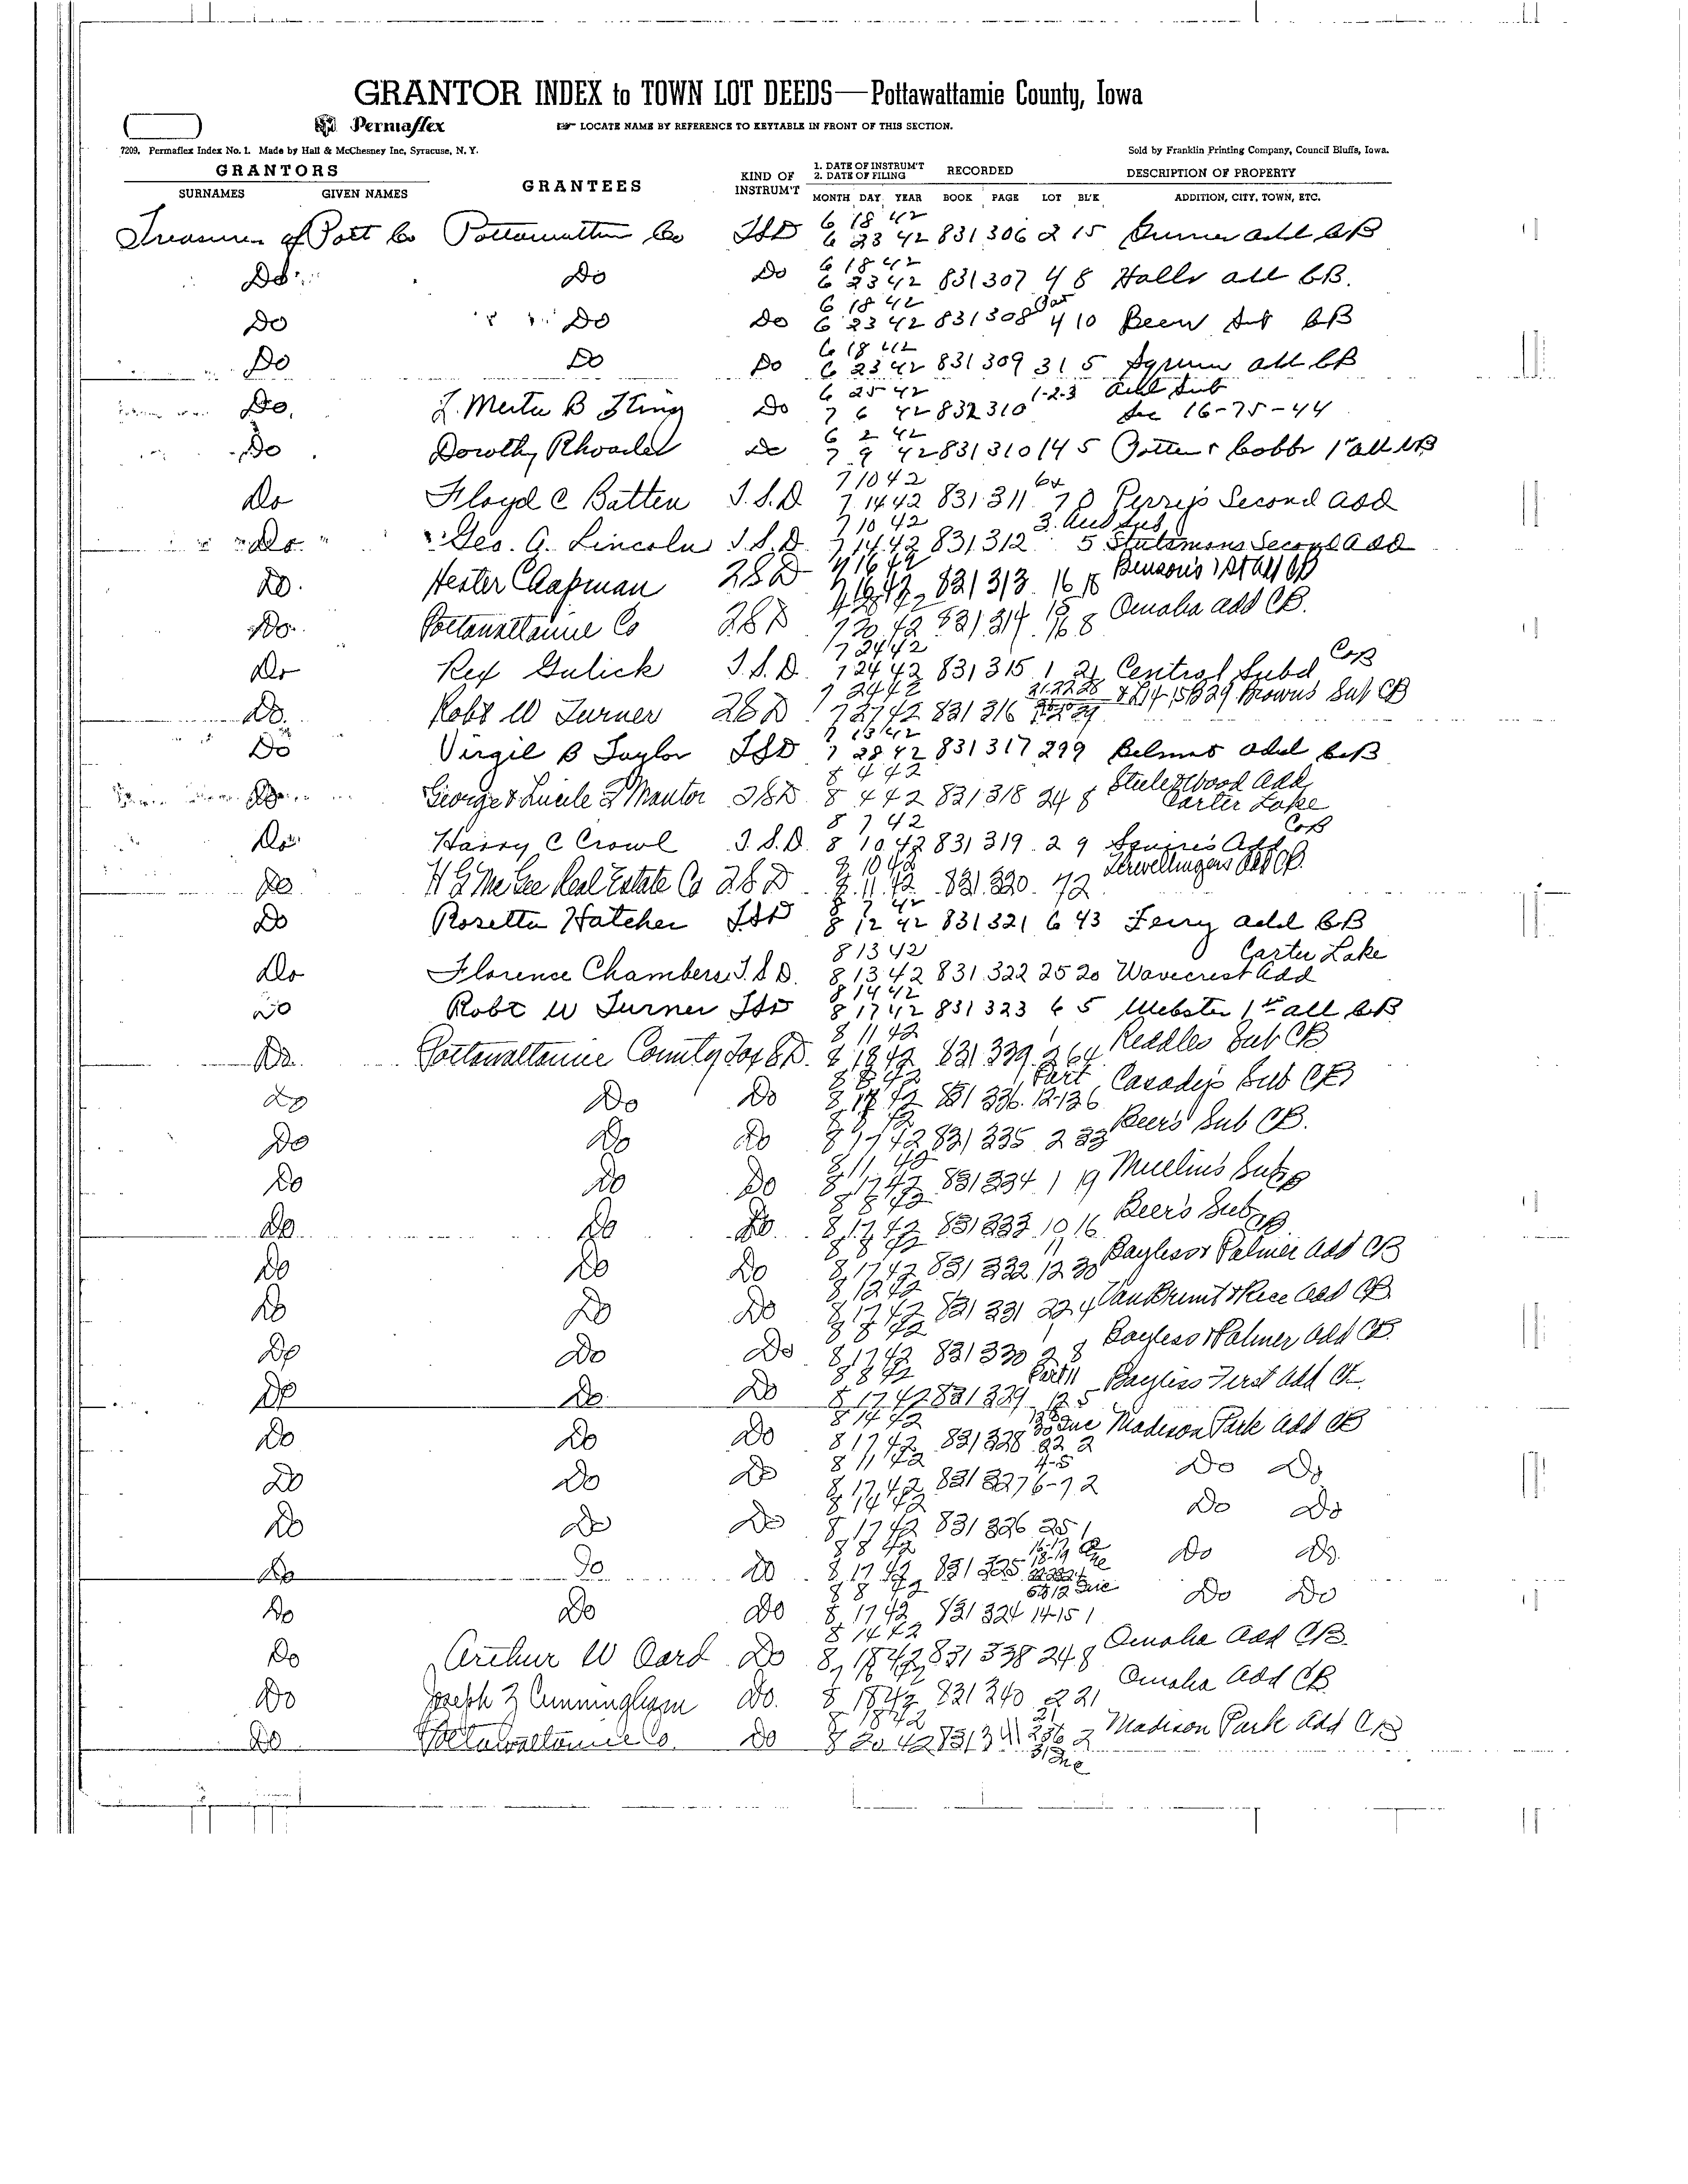 GRANTOR INDEX to TOWN LOT DEEDS—Pottawattamie County, Iowa
Permaflex
LOCATE NAME BY REFERENCE TO KEYTABLE IN FRONT OF THIS SECTION.
7209, Permaflex Index No. 1. Made by Hall & McChesney Inc, Syracuse, N. Y.
Sold by Franklin Printing Company, Council Bluffs, Iowa.
GRANTORS GRANTEES KIND OF INSTRUM'T 1. DATE OF INSTRUM'T 2. DATE OF FILING RECORDED DESCRIPTION OF PROPERTY
SURNAMES GIVEN NAMES MONTH DAY YEAR BOOK PAGE LOT BL'K ADDITION, CITY, TOWN, ETC.
6 18 42
Treasurer of Pott Co Pottawattamie Co 6 23 42 831 306 2 15 add CB
6 18 42
Do Do Do 6 23 42 831 307 4 8 Halls add CB.
6 18 42
Do Do Do 6 23 42 831 308 4 10 Beers Sub CB
6 18 42
Do Do Do 6 23 42 831 309 31 5 add CB
6 25 42 1-2-3 Sub
Do. B Do 7 6 42 832 310 Sec 16-75-44
6 2 42
Do Dorothy Rhoades Do 7 9 42 831 310 14 5 & Cobbs 1st add CB
7 10 42
Do Floyd C Batten T.S.D. 7 14 42 831 311 7 Perry's Second add
7 10 42 3. Aud Sub
Do Geo. A. Lincoln T.S.D. 7 14 42 831 312 5 Stutsmans Second add
7 16 42 Benson's 1st add CB
Do. Hester Chapman 7 16 42 831 313 16 18
Do. Pottawattamie Co 7 20 42 831 314 8 Omaha add CB.
7 24 42 CB
Do Rex Gulick T.S.D. 7 24 42 831 315 1 21 Central Subd
7 24 42
Do. Robt W Turner 7 27 42 831 316 Browns Sub CB
7 13 42
Do Virgil B Taylor 7 28 42 831 317 29 9 Belmont add CB
8 4 42 Steele & Wood Add
Do George & Lucile Mantor 8 4 42 831 318 24 8 Carter Lake
8 7 42 CB
Do Harry C Crowl T.S.D. 8 10 42 831 319 2 9 Squire's Add
8 10 42
Do H G McGee Real Estate Co 8 11 42 831 320 72 add CB.
8 7 42
Do Rosetta Hatcher 8 12 42 831 321 6 43 Ferry add CB
8 13 42 Carter Lake
Do Florence Chambers T.S.D. 8 13 42 831 322 25 20 Wavecrest add
8 14 42
Do Robt W Turner 8 17 42 831 323 6 5 Webster 1st add CB
8 11 42
Do. Pottawattamie County Tax S D. 8 18 42 831 339 Riddles Sub CB
8 8 42 Part
Do Do Do 8 17 42 831 336 12-13 6 Casady's Sub CB
Do Do Do 8 17 42 831 335 2 33 Beers Sub CB.
8 11 42
Do Do Do 8 17 42 831 334 1 19 Sub CB
8 8 42
Do Do Do. 8 17 42 831 333 10 16 Beer's Sub CB
8 8 42 11
Do Do Do 8 17 42 831 332 12 30 Bayliss & Palmer Add CB
8 12 42
Do Do Do 8 17 42 831 331 22 4 Van Brunt & Rice Add CB.
8 8 42
Do Do Do 8 17 42 831 330 8 Bayliss & Palmer Add CB.
8 8 42 Part 11
Do Do. Do 8 17 42 831 329 12 5 Bayliss First Add CB.
8 14 42
Do Do Do 8 17 42 831 328 22 2 Madison Park Add CB
8 11 42 4-5
Do Do Do 8 17 42 831 327 6-7 2 Do Do
8 14 42
Do Do Do 8 17 42 831 326 25 1 Do Do
8 8 42 16-17 18-19
Do Do Do 8 17 42 831 325 Do Do.
8 8 42
Do Do Do 8 17 42 831 324 14-15 1 Do Do
8 14 42
Do Arthur W Card Do 8 18 42 831 338 24 8 Omaha Add CB.
Do Joseph Z Cunningham Do. 8 18 42 831 340 2 21 Omaha Add CB
8 18 42 21
Do Pottawattamie Co. Do 8 20 42 831 341 2 Madison Park Add CB